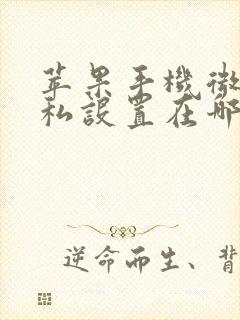 苹果手機微
私設置在哪
逆命而生、背